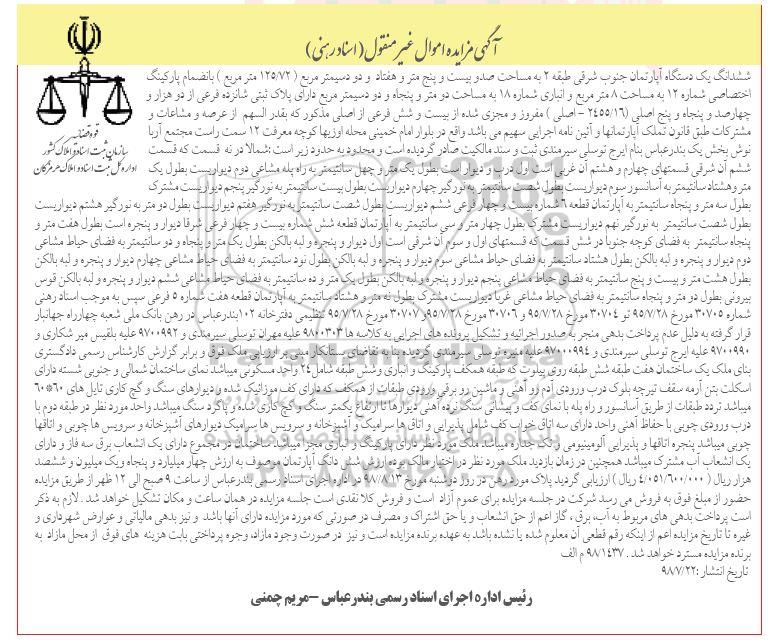 آگهی مزایده اموال غیر منقول ( اسناد رهنی )
قوه قضائیه
سازمان ثبت اسناد و املاک کشور
اداره کل ثبت اسناد و املاک هرمزگان
ششدانگ یک دستگاه آپارتمان جنوب شرقی طبقه ۲ به مساحت صدو بیست و پنج متر و هفتاد و دو دسیمتر مربع ( ۱۲۵/۷۲ متر مربع ) بانضمام پارکینگ
اختصاصی شماره ۱۲ به مساحت ۸ متر مربع و انباری شماره ۱۸ به مساحت دو متر و پنجاه و دو دسیمتر مربع دارای پلاک ثبتی شانزده فرعی از دو هزار و
چهارصد و پنجاه و پنج اصلی (۲۴۵۵/۱۶ - اصلی ) مفروز و مجزی شده از بیست و شش فرعی از اصلی مذکور که بقدر السهم از عرصه و مشاعات و
مشترکات طبق قانون تملک آپارتمانها و آئین نامه اجرایی سهیم می باشد واقع در بلوار امام خمینی محله اوزیها کوچه معرفت ۱۲ سمت راست مجتمع آریا
نوش بخش یک بندرعباس بنام ایرج توسلی سیرمندی ثبت و سند مالکیت صادر گردیده است و محدود به حدود زیر است :شمالا در نه قسمت که قسمت
ششم آن شرقی قسمتهای چهارم و هشتم آن غربی است اول درب و دیوار است بطول یک متر و چهل سانتیمتر به راه پله مشاعی دوم دیواریست بطول یک
متر وهشتاد سانتیمتر به آسانسور سوم دیواریست بطول شصت سانتیمتر به نورگیر چهارم دیواریست بطول بیست سانتیمتر به نورگیر پنجم دیواریست مشترک
بطول سه متر و پنجاه سانتیمتر به آپارتمان قطعه ۶ شماره بیست و چهار فرعی ششم دیواریست بطول شصت سانتیمتر به نورگیر هفتم دیواریست بطول دو متر به نورگیر هشتم دیواریست
بطول شصت سانتیمتر به نورگیر نهم دیواریست مشترک بطول چهار متر و سی سانتیمتر به آپارتمان قطعه شش شماره بیست و چهار فرعی شرقا دیوار و پنجره است بطول هفت متر و
پنجاه سانتیمتر به فضای کوچه جنوبا در شش قسمت که قسمتهای اول و سوم آن شرقی است اول دیوار و پنجره و لبه بالکن بطول یک متر و پنجاه و دو سانتیمتر به فضای حیاط مشاعی
دوم دیوار و پنجره و لبه بالکن بطول هشتاد سانتیمتر به فضای حیاط مشاعی سوم دیوار و پنجره و لبه بالکن بطول نود سانتیمتر به فضای حیاط مشاعی چهارم دیوار و پنجره و لبه بالکن
بطول هشت متر و بیست و پنج سانتیمتر به فضای حیاط مشاعی پنجم دیوار و پنجره و لبه بالکن بطول یک متر و ده سانتیمتر به فضای حیاط مشاعی ششم دیوار و پنجره و لبه بالکن قوس
بیرونی بطول دو متر و پنجاه سانتیمتر به فضای حیاط مشاعی غربا دیواریست مشترک بطول نه متر و هشتاد سانتیمتر به آپارتمان قطعه هفت شماره ۵ فرعی سپس به موجب اسناد رهنی
شماره ۳۰۷۰۵ مورخ ۹۵/۷/۲۸ تو ۳۰۷۰۴ مورخ ۹۵/۷/۲۸ و ۳۰۷۰۶ مورخ ۹۵/۷/۲۸و ۳۰۷۰۷ مورخ ۹۵/۷/۲۸ تنظیمی دفترخانه ۱۰۲بندرعباس در رهن بانک ملی شعبه چهارراه جهانبار
قرار گرفته به دلیل عدم پرداخت بدهی منجر به صدور اجرائیه و تشکیل پرونده های اجرایی به کلاسه ها ۹۸۰۰۳۰۳ علیه مهران توسلی سیرمندی و ۹۷۰۰۹۹۲ علیه بلقیس میر شکاری و
۹۷۰۰۹۹۰ علیه ایرج توسلی سیرمندی و ۹۷۰۰۰۹۹۴ علیه منیره توسلی سیرمندی گردیده بنا به تقاضای بستانکار مبنی بر ارزیابی ملک فوق و برابر گزارش کارشناس رسمی دادگستری
بنای ملک یک ساختمان هفت طبقه شش طبقه روی پیلوت که طبقه همکف پارکینگ و انباری وشش طبقه شامل ۲۴ واحد مسکونی میباشد نمای ساختمان شمالی و جنوبی شسته دارای
اسکلت بتن آرمه سقف تیرچه بلوک درب ورودی آدم رو آهنی و ماشین رو برقی ورودی طبقات از همکف که دارای کف موزائیک شده و دیوارهای سنگ و گچ کاری تایل های ۶۰*۶۰
میباشد تردد طبقات از طریق آسانسور و راه پله با نمای کف و پیشانی سنگ نرده آهنی دیوارها تا ارتفاع یکمتر سنگ و گچ کاری شده و پاگرد سنگ میباشد واحد مورد نظر در طبقه دوم با
درب ورودی چوبی با حفاظ آهنی واحد دارای سه اتاق خواب کف شامل پذیرایی و اتاق ها سرامیک و آشپزخانه و سرویس ها سرامیک دیوارهای آشپزخانه و سرویس ها چوبی و اتاقها
چوبی میباشد پنجره اتاقها و پذیرایی آلومینیومی و تک جداره میباشد ملک مورد نظر دارای پارکینگ و انباری مجزا میباشد ساختمان در مجموع دارای یک انشعاب برق سه فاز و دارای
یک انشعاب آب مشترک میباشد همچنین در زمان بازدید ملک مورد نظر در اختیار مالک بوده ارزش شش دانگ آپارتمان موصوف به ارزش چهار میلیارد و پنجاه ویک میلیون و ششصد
هزار ریال ( ۴/۰۵۱/۶۰۰/۰۰۰ ریال ) ارزیابی گردید پلاک موردرهن در روز دوشنبه مورخ ۹۸/۸/۱۳ در اداره اجرای اسناد رسمی بندرعباس از ساعت ۹ صبح الی ۱۲ ظهر از طریق مزایده
حضور از مبلغ فوق به فروش می رسد شرکت در جلسه مزایده برای عموم آزاد است و فروش کلا نقدی است جلسه مزایده در همان ساعت و مکان تشکیل خواهد شد . لازم به ذکر
است پرداخت بدهی های مربوط به آب، برق ، گاز اعم از حق انشعاب و یا حق اشتراک و مصرف در صورتی که مورد مزایده دارای آنها باشد و نیز بدهی مالیاتی و عوارض شهرداری و
غیره تا تاریخ مزایده اعم از اینکه رقم قطعی آن معلوم شده یا نشده باشد به عهده برنده مزایده است و نیز در صورت وجود مازاد، وجوه پرداختی بابت هزینه های فوق از محل مازاد به
برنده مزایده مسترد خواهد شد . ۹۸۱۴۳۷ م الف
تاریخ انتشار :۹۸/۷/۲۲
رئیس اداره اجرای اسناد رسمی بندرعباس –مریم چمنی